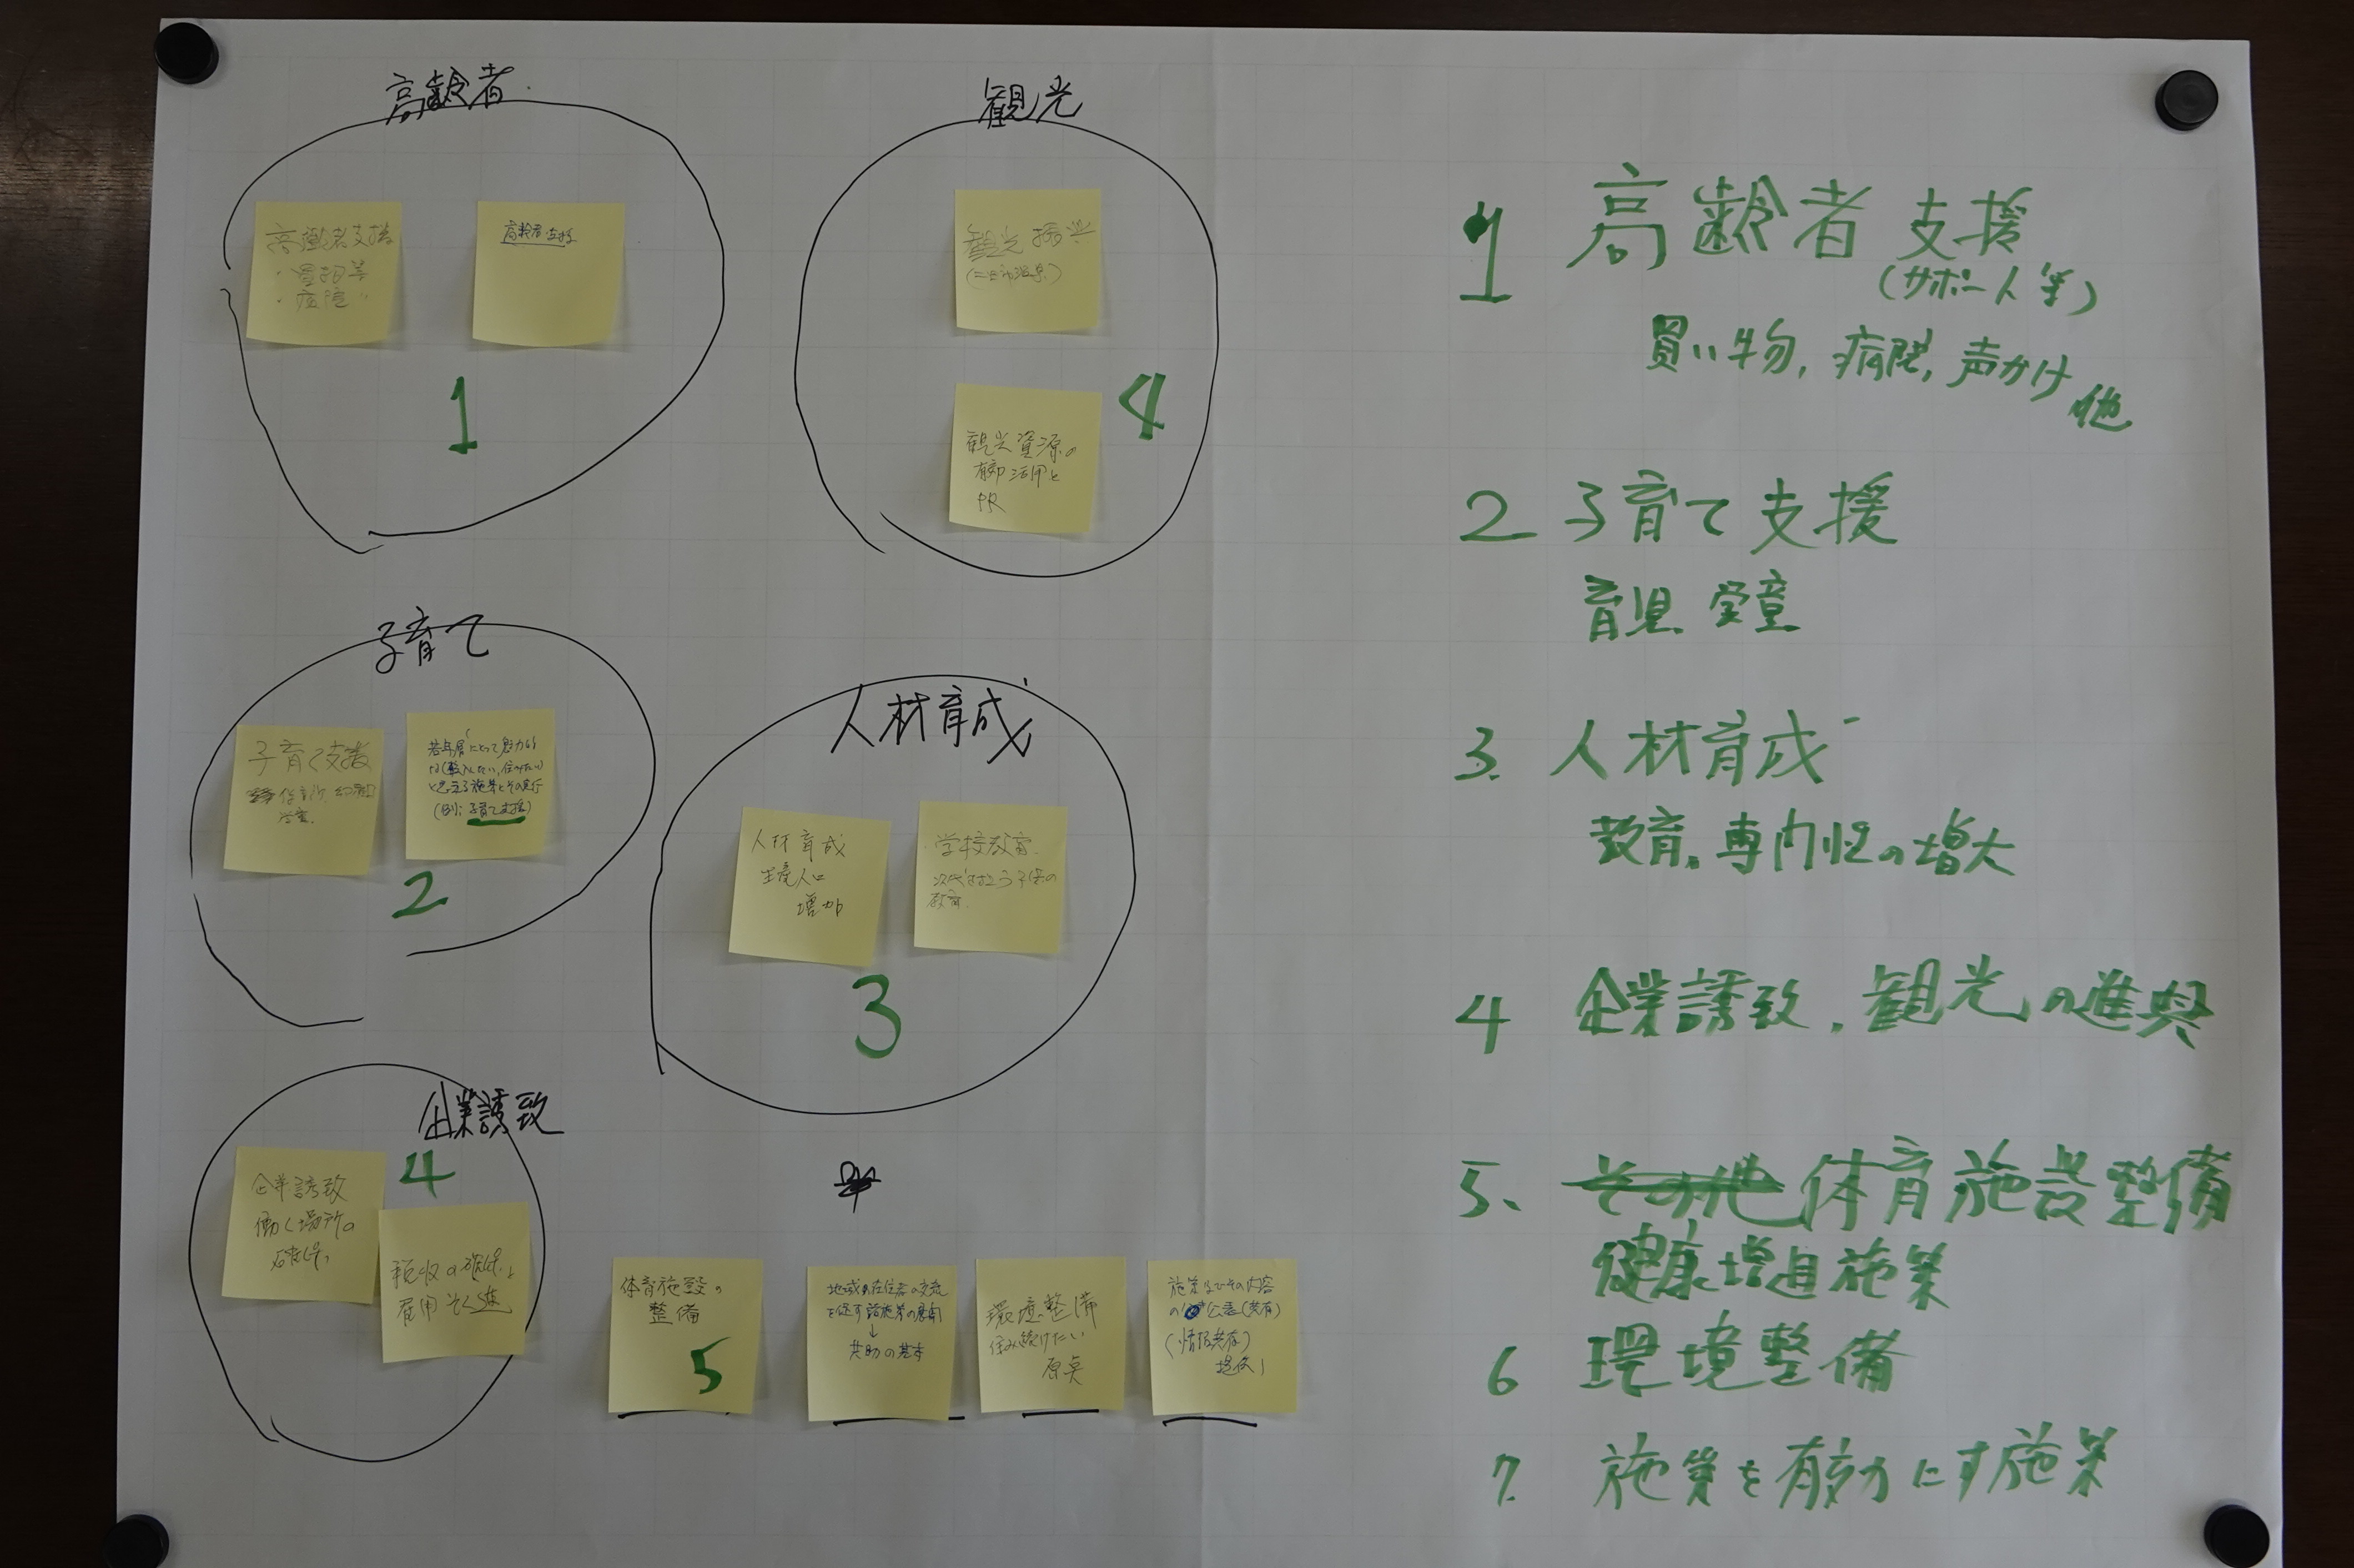 高齢者
高齢者支援
・買物等
・病院〃
高齢者支援
1
観光
観光振興
観光資源の
有効活用と
PR
4
子育て
子育て支援
保育所 幻稚園
学童
若年層にとって魅力的
な(転入したい、住みたい)
と思える施策とその実行
(例:子育て支援)
2
人材育成
人材育成
生産人口
増加
学校教育
次代を担う子供の
教育
3
企業誘致
4
企業誘致
働く場所の
確保
税収の確保と
雇用そくしん
体育施設の
整備
5
地域内在住者の交流
を促す諸施策の展開
↓
共助の基本
環境整備
住み続けたい
原点
施策及びその内容
の公表(共有)
(情報共有)
提供
1 高齢者支援
(サポート人等)
買い物, 病院, 声かけ他
2 子育て支援
育児、学童
3. 人材育成
教育。専門性の増大
4 企業誘致, 観光の進興
5、その他 体育施設整備
健康増進施策
6 環境整備
7. 施策を有効にす施策